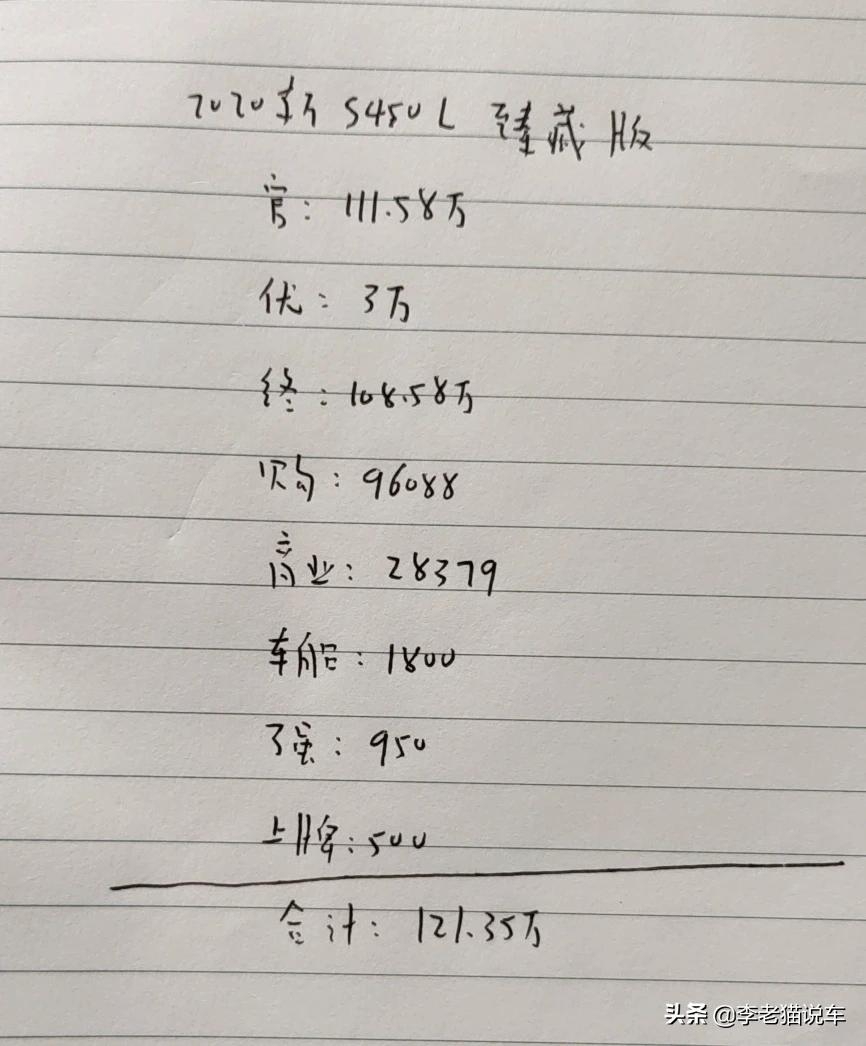 2020新 S450L 臻藏版
官: 111.58万
优: 3万
终: 108.58万
购: 96088
商业: 28379
车船: 1800
强: 950
上牌: 500
合计: 121.35万
头条 @李老猫说车